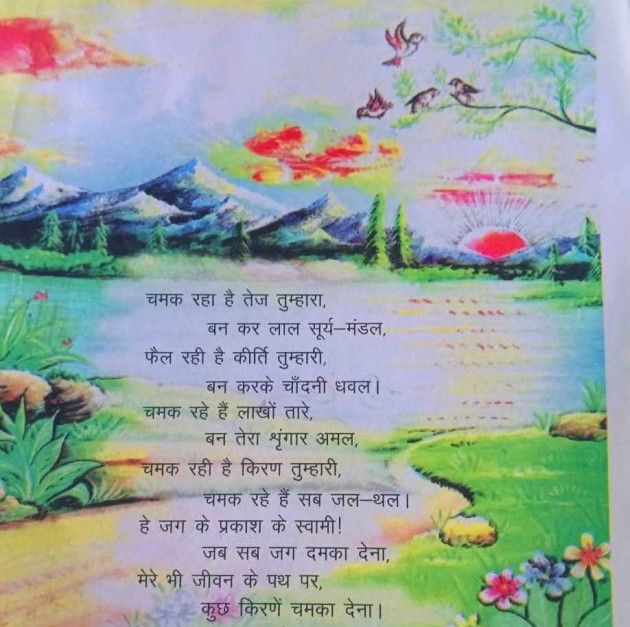 चमक रहा है तेज तुम्हारा,
बन कर लाल सूर्य–मंडल,
फैल रही है कीर्ति तुम्हारी,
बन करके चाँदनी धवल।
चमक रहे हैं लाखों तारे,
बन तेरा शृंगार अमल,
चमक रही है किरण तुम्हारी,
चमक रहे हैं सब जल–थल।
हे जग के प्रकाश के स्वामी!
जब सब जग दमका देना,
मेरे भी जीवन के पथ पर,
कुछ किरणें चमका देना।